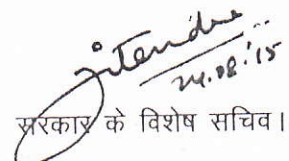 Jitendra
24.08.'15
सरकार के विशेष सचिव।